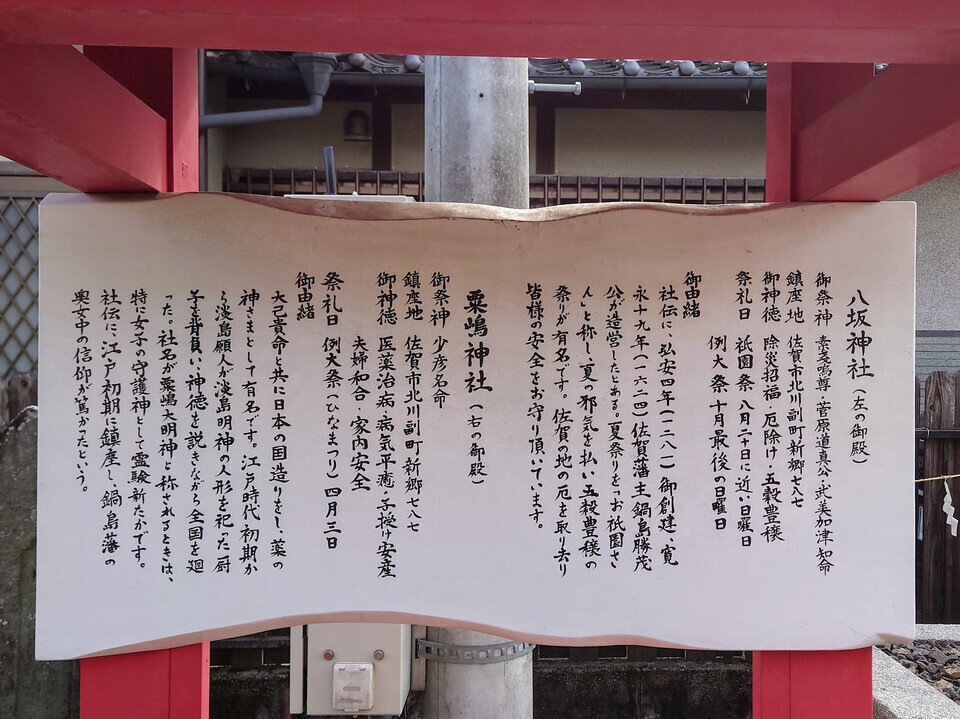 八坂神社（左の御殿）
御祭神 素戔嗚尊・菅原道真公・武美加津知命
鎮座地 佐賀市北川副町新郷七八七
御神徳 除災招福・厄除け・五穀豊穣
祭礼日 祇園祭 八月二十日に近い日曜日
例大祭 十月最後の日曜日
御由緒
社伝に、弘安四年（一二八一）御創建、寛
永十九年（一六二四）佐賀藩主鍋島勝茂
公が造営したとある。夏祭りを「お祇園さ
ん」と称し、夏の邪気を払い五穀豊穣の
祭りが有名です。佐賀の地の厄を取り去り
皆様の安全をお守り頂いています。
粟嶋神社（右の御殿）
御祭神 少彦名命
鎮座地 佐賀市北川副町新郷七八七
御神徳 医薬治病・病気平癒・子授け安産
夫婦和合・家内安全
祭礼日 例大祭（ひなまつり）四月三日
御由緒
大己貴命と共に日本の国造りをし、薬の
神さまとして有名です。江戸時代初期か
ら淡島願人が淡島明神の人形を祀った厨
子を背負い、神徳を説きながら全国を廻
った、社名が粟嶋大明神と称されるときは、
特に女子の守護神として霊験新たかです。
社伝に、江戸初期に鎮座し、鍋島藩の
奥女中の信仰が篤かったという。